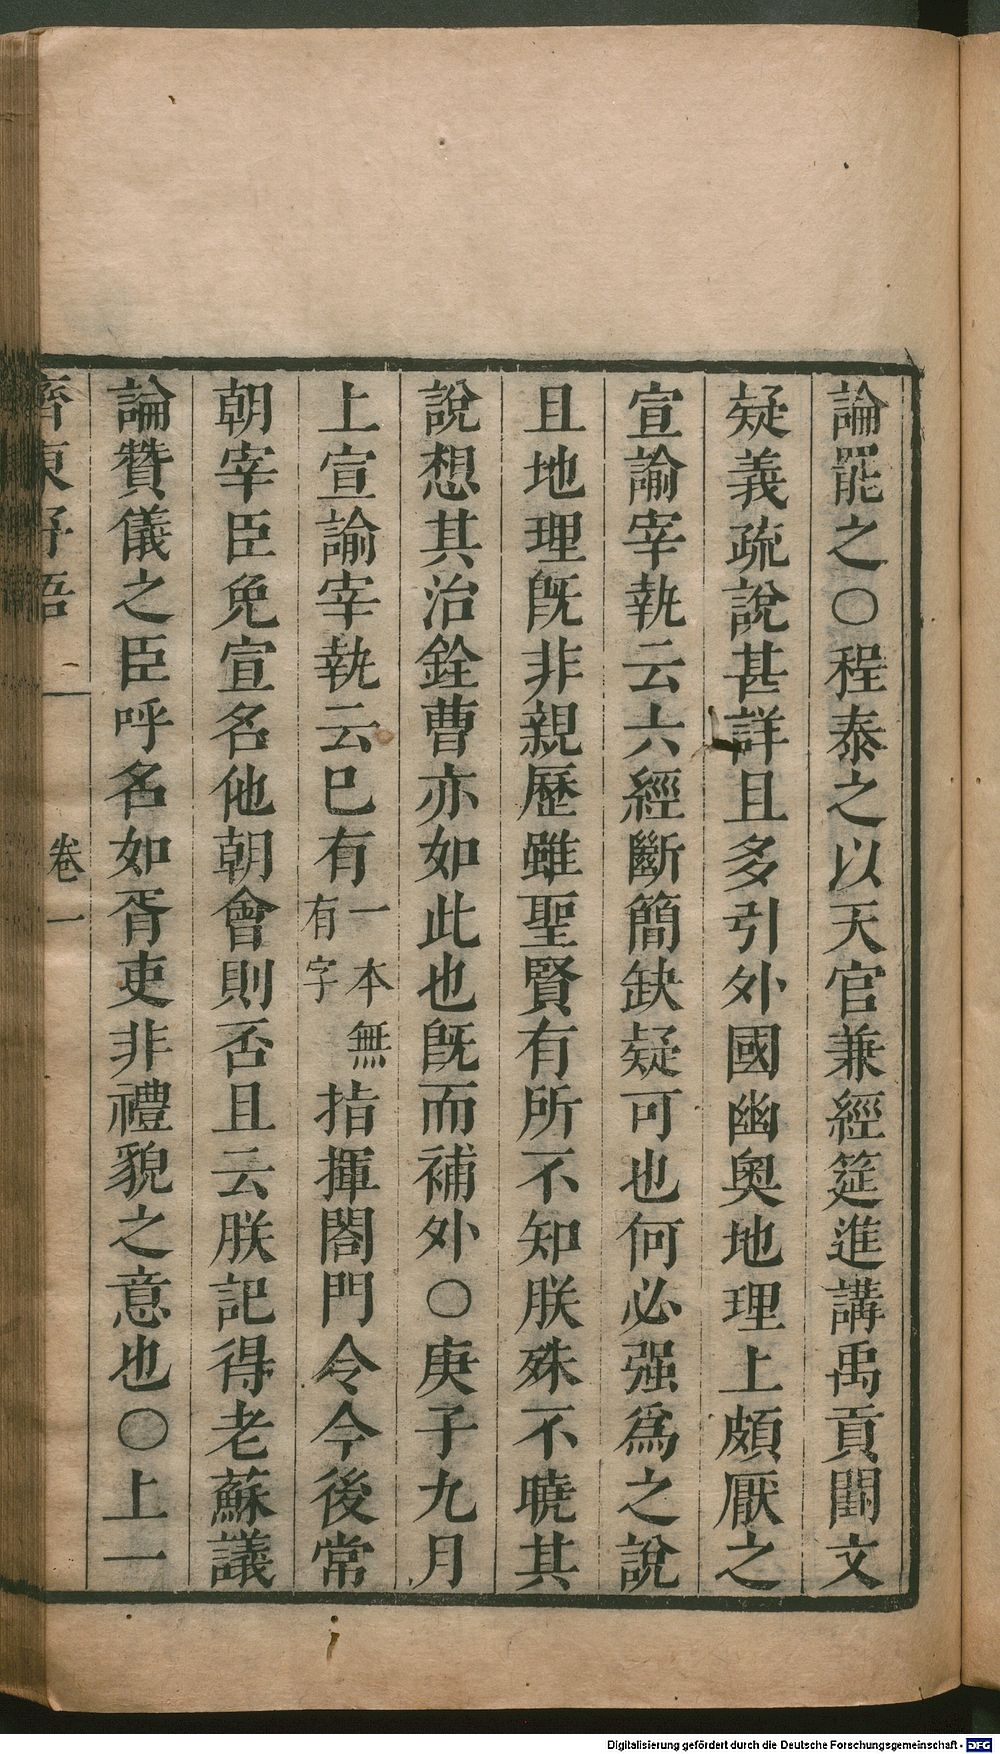 論罷之○程泰之以天官兼經筵進講禹貢闕文
疑義疏說甚詳且多引外國幽奧地理上頗厭之
宣諭宰執云六經斷簡缺疑可也何必强爲之說
且地理旣非親歷雖聖賢有所不知朕殊不曉其
說想其治銓曹亦如此也旣而補外○庚子九月
上宣諭宰執云巳有一本無有字指揮閤門令今後常
朝宰臣免宣名他朝會則否且云朕記得老蘇議
論贊儀之臣呼名如胥吏非禮貌之意也○上一
齊東野語
卷一
Digitalisierung gefördert durch die Deutsche Forschungsgemeinschaft - DFG